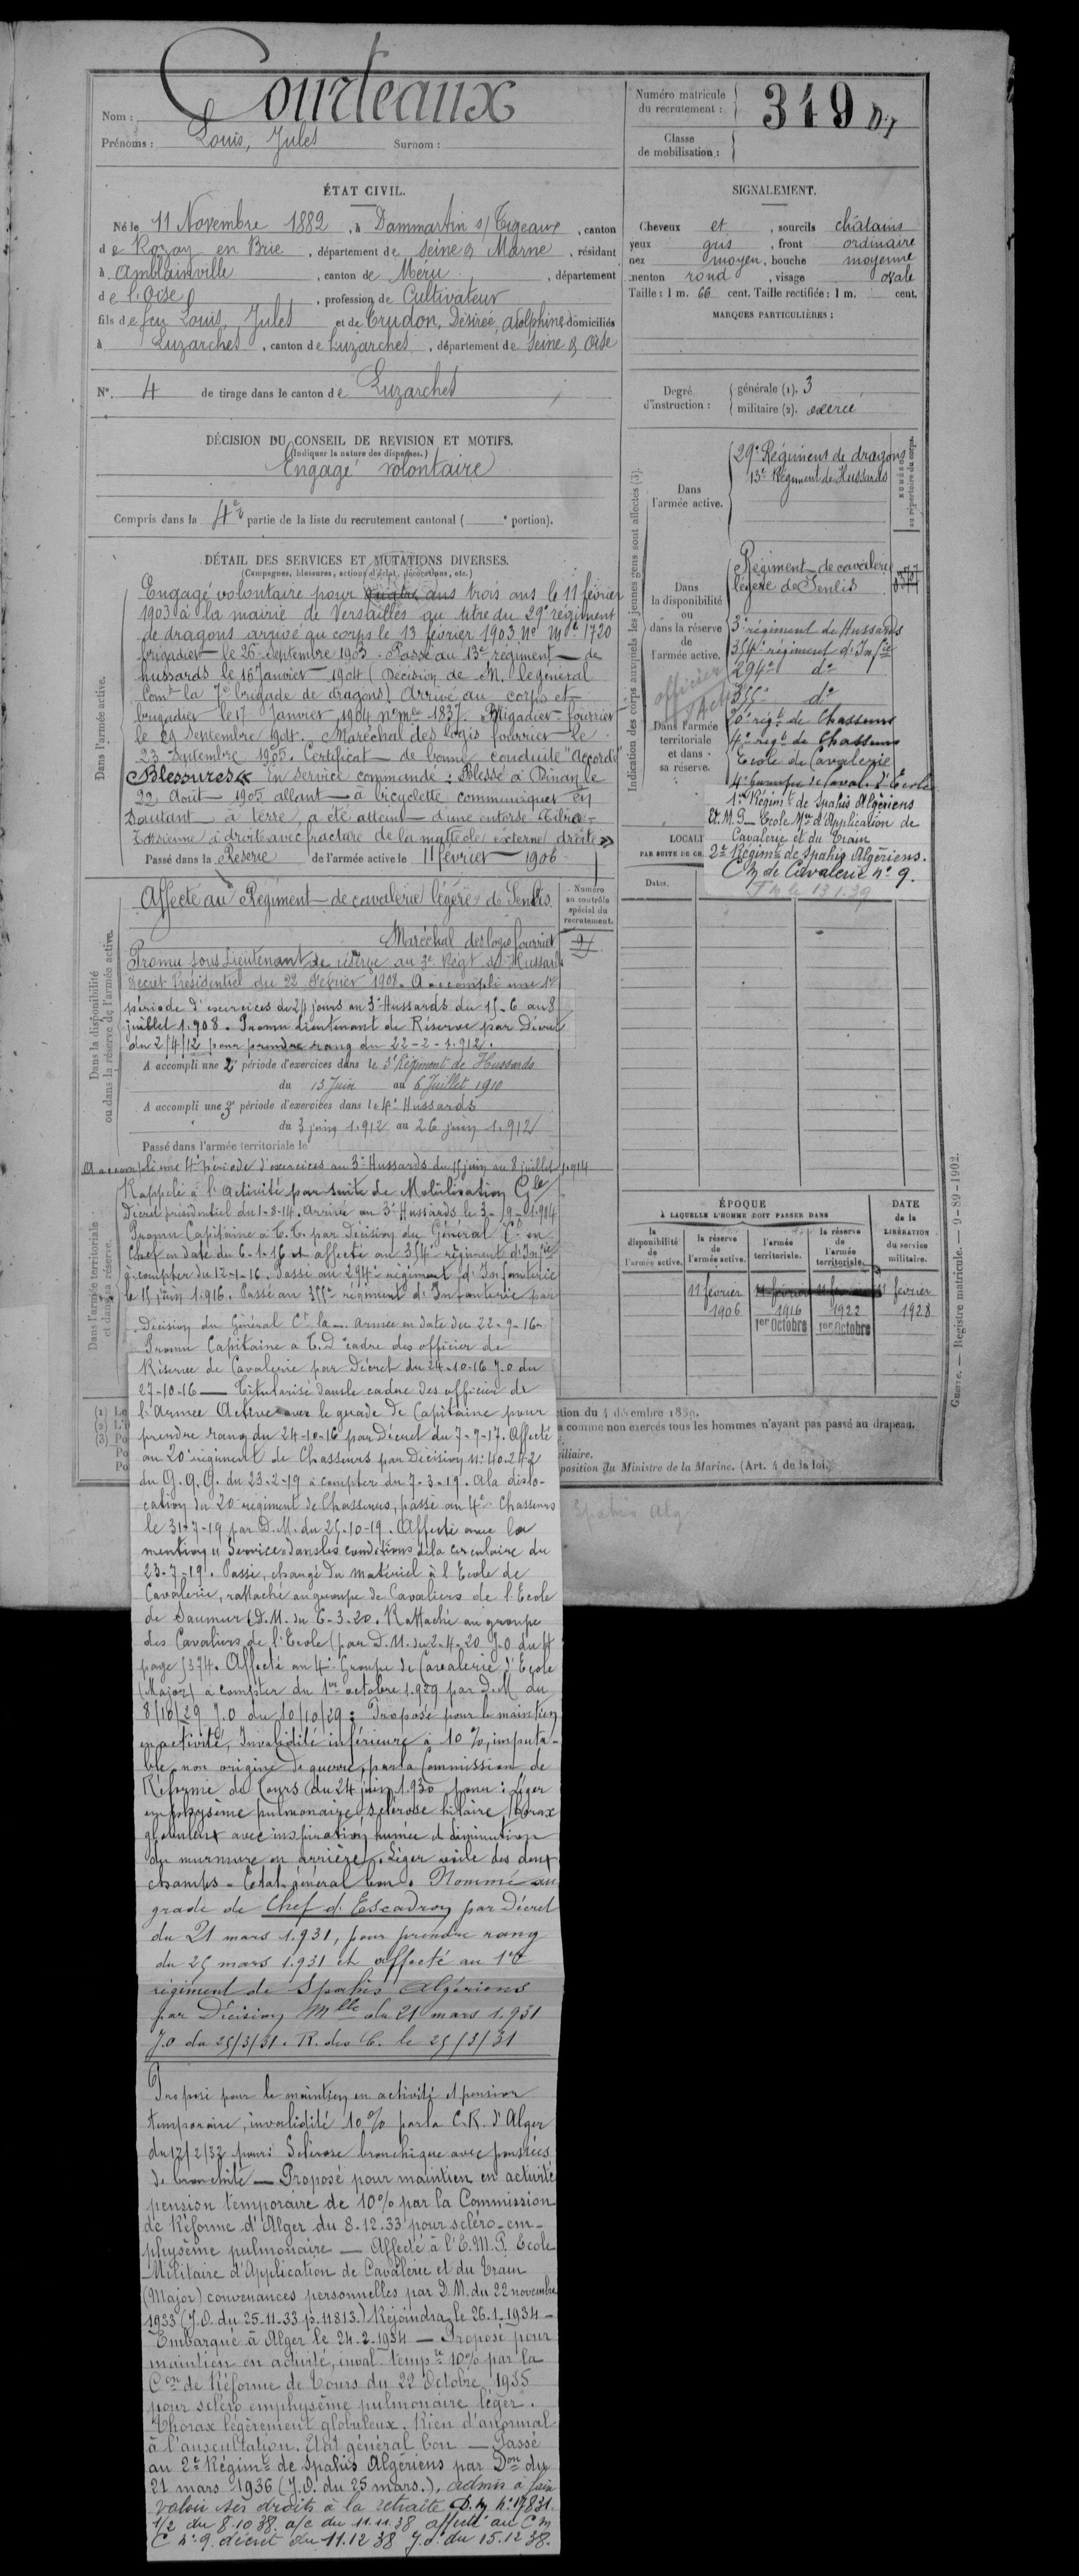 Nom : Courteaux
Prénoms : Louis, Jules Surnom :
Numéro matricule du recrutement : 319
Classe de mobilisation :
ÉTAT CIVIL.
Né le 11 Novembre 1882, à Dammartin s/ Tigeaux, canton
de Rozoy en Brie, département de Seine & Marne, résidant
à Amblainville, canton de Méru, département
de l'Oise, profession de Cultivateur
fils de feu Louis, Jules et de Trudon, Désirée, Adolphine domiciliés
à Luzarches, canton de Luzarches, département de Seine & Oise
No. 4 de tirage dans le canton de Luzarches
DÉCISION DU CONSEIL DE REVISION ET MOTIFS.
(Indiquer la nature des dispenses.)
Engagé volontaire
Compris dans la 4e partie de la liste du recrutement cantonal ( e portion).
SIGNALEMENT.
Cheveux et , sourcils châtains
yeux gris , front ordinaire
nez moyen, bouche moyenne
menton rond , visage ovale
Taille : 1 m. 66 cent. Taille rectifiée : 1 m. cent.
MARQUES PARTICULIÈRES :
Degré d'instruction :
générale (1). 3
militaire (2). exercé
DÉTAIL DES SERVICES ET MUTATIONS DIVERSES.
(Campagnes, blessures, actions d'éclat, décorations, etc.)
Dans l'armée active.
Engagé volontaire pour quatre ans trois ans le 11 février
1903 à la mairie de Versailles au titre du 29e régiment
de dragons arrivé au corps le 13 février 1903 No Mle 1720
brigadier le 26 septembre 1903. Passé au 13e régiment de
hussards le 15 Janvier 1904 (Décision de M. le général
Comt la 7e brigade de dragons) Arrivé au corps et
brigadier le 17 Janvier 1904 no mle 1837. Brigadier-fourrier
le 29 Septembre 1904. Maréchal des logis fourrier le
23 Septembre 1905. Certificat de bonne conduite "Accordé"
Blessures « En service commandé : Blessé à Dinan le
22 Août 1905 allant à bicyclette communiquer
Sautant à terre, a été atteint d'une entorse tibio-
tarsienne à droite avec fracture de la malléole externe droite »
Passé dans la Réserve de l'armée active le 11 février 1906
Numéro au contrôle spécial du recrutement.
Dans la disponibilité ou dans la réserve de l'armée active.
Affecté au Régiment de cavalerie légère de Senlis
Maréchal des logis fourrier
Promu sous Lieutenant de réserve au 3e Régt de Hussards
Décret Présidentiel du 22 février 1908. A accompli une 1re
période d'exercices de 24 jours au 3e Hussards du 15-6 au 8
juillet 1.908. Promu Lieutenant de Réserve par Décret
du 2/4/12 pour prendre rang du 22-2-1.912.
A accompli une 2e période d'exercices dans le 3e Régiment de Hussards
du 13 Juin au 6 Juillet 1910
A accompli une 3e période d'exercices dans le 4e Hussards
du 3 juin 1.912 au 26 juin 1.912
Passé dans l'armée territoriale le
A accompli une 4e période d'exercices au 3e Hussards du 15 juin au 8 juillet 1.914
Dans l'armée territoriale et dans sa réserve.
Rappelé à l'activité par suite de Mobilisation Gle
Décret présidentiel du 1-8-14. Arrivé au 3e Hussards le 3-
Promu Capitaine à T.T. par Décision du Général Ct en
Chef en date du 6-1-16 et affecté au 354e régiment d'Infie
à compter du 12-1-16. Passé au 294e régiment d'Infanterie
le 15 juin 1.916. Passé au 355e régiment d'Infanterie par
Décision du Général Ct la Armée en date du 22-9-16
Promu Capitaine à T.D cadre des officier de
Réserve de Cavalerie par Décret du 24-10-16 J.O du
27-10-16 — Titularisé dans le cadre des officier de
l'Armée Active avec le grade de Capitaine pour
prendre rang du 24-10-16 par Décret du 7-9-17. Affecté
au 20e régiment de Chasseurs par Décision No 40.242
du G.Q.G. du 23-2-19 à compter du 7-3-19. A la dislo-
cation du 20 régiment de Chasseurs, passe au 4e Chasseurs
le 31-7-19 par D.M. du 25-10-19. Affecté avec la
mention "Service dans les conditions de la circulaire du
23-7-19". Passé, chargé du matériel à l'Ecole de
Cavalerie, rattaché au groupe de Cavaliers de l'Ecole
de Saumur (D.M. du 6-3-20. Rattaché au groupe
des Cavaliers de l'Ecole (par D.M. du 2-4-20 J.O du 4
page 5374. Affecté au 4e Groupe de Cavalerie d'Ecole
(Major) à compter du 1er octobre 1.929 par D.M du
8/10/29 J.O du 10/10/29 : Proposé pour le maintien
en activité, Invalidité inférieure à 10 %, imputa-
ble non origine de guerre, par la Commission de
Réforme de Tours (du 24 juin 1.930 pour : Léger
emphysème pulmonaire, sclérose hilaire, thorax
globuleux avec inspiration humée et diminution
du murmure en arrière. Léger voile des deux
champs - Etat général bon. Nommé au
grade de Chef d'Escadron par Décret
du 21 mars 1.931, pour prendre rang
du 25 mars 1.931 et affecté au 1er
régiment de Spahis Algériens
par Décision Mlle du 21 mars 1.931
J.O du 25/3/31. R. des C. le 25/3/31
Proposé pour le maintien en activité et pension
temporaire, invalidité 10% par la C.R. d'Alger
du 12/2/32 pour : Sclérose bronchique avec poussées
de bronchite — Proposé pour maintien en activité
pension temporaire de 10% par la Commission
de Réforme d'Alger du 8.12.33 pour scléro-em-
physème pulmonaire — Affecté à l'E.M.P. Ecole
Militaire d'Application de Cavalerie et du Train
(Major) convenances personnelles par D.M. du 22 novembre
1933 (J.O. du 25-11-33 p. 11813.) Rejoindra le 26.1.1934 —
Embarqué à Alger le 24-2-1934 — Proposé pour
maintien en activité, inval. tempre 10% par la
Con de Réforme de Tours du 22 Octobre 1935
pour scléro emphysème pulmonaire léger.
Thorax légèrement globuleux. Rien d'anormal
à l'auscultation. Etat général bon — Passé
au 2e Régimt de Spahis Algériens par Don du
21 mars 1936 (J.O. du 25 mars.). Admis à faire
valoir ses droits à la retraite D.M No 17831.
1/2 du 8.10.38 a/c du 11.11.38 affecté au Cm
C no 9. décret du 11.12.38 J.O. du 15.12.38.
Indication des corps auxquels les jeunes gens sont affectés (3).
NUMÉRO au répertoire du corps.
Dans l'armée active.
29e Régiment de dragons
13e Régiment de Hussards
Dans la disponibilité ou dans la réserve de l'armée active.
Régiment de cavalerie
légère de Senlis
3e régiment de Hussards
354e régiment d'Infie
294e do
355e do
officier
Dans l'armée territoriale et dans sa réserve.
20e régt de Chasseurs
4e régt de Chasseurs
Ecole de Cavalerie
4e Groupe de Cavale d'Ecole
1er Régimt de Spahis Algériens
Et. M. P. Ecole Mre d'Application de
Cavalerie et du Train
2e Régimt de Spahis Algériens.
Cm de Cavalerie no 9.
LOCALI
PAR SUITE DE CH
Dates.
ÉPOQUE
À LAQUELLE L'HOMME DOIT PASSER DANS
la disponibilité de l'armée active.
la réserve de l'armée active.
l'armée territoriale.
la réserve de l'armée territoriale.
DATE de la LIBÉRATION du service militaire.
11 février 1906
11 février 1916 1er Octobre
11 février 1922 1er Octobre
11 février 1928
Guerre. — Registre matricule. — 9-89-1902.
(1) Le
(2) L'i
(3) Po
Po
Po
ction du 4 décembre 1889.
a comme non exercés tous les hommes n'ayant pas passé au drapeau.
iliaire.
position du Ministre de la Marine. (Art. 4 de la loi.)
Spahis Alg